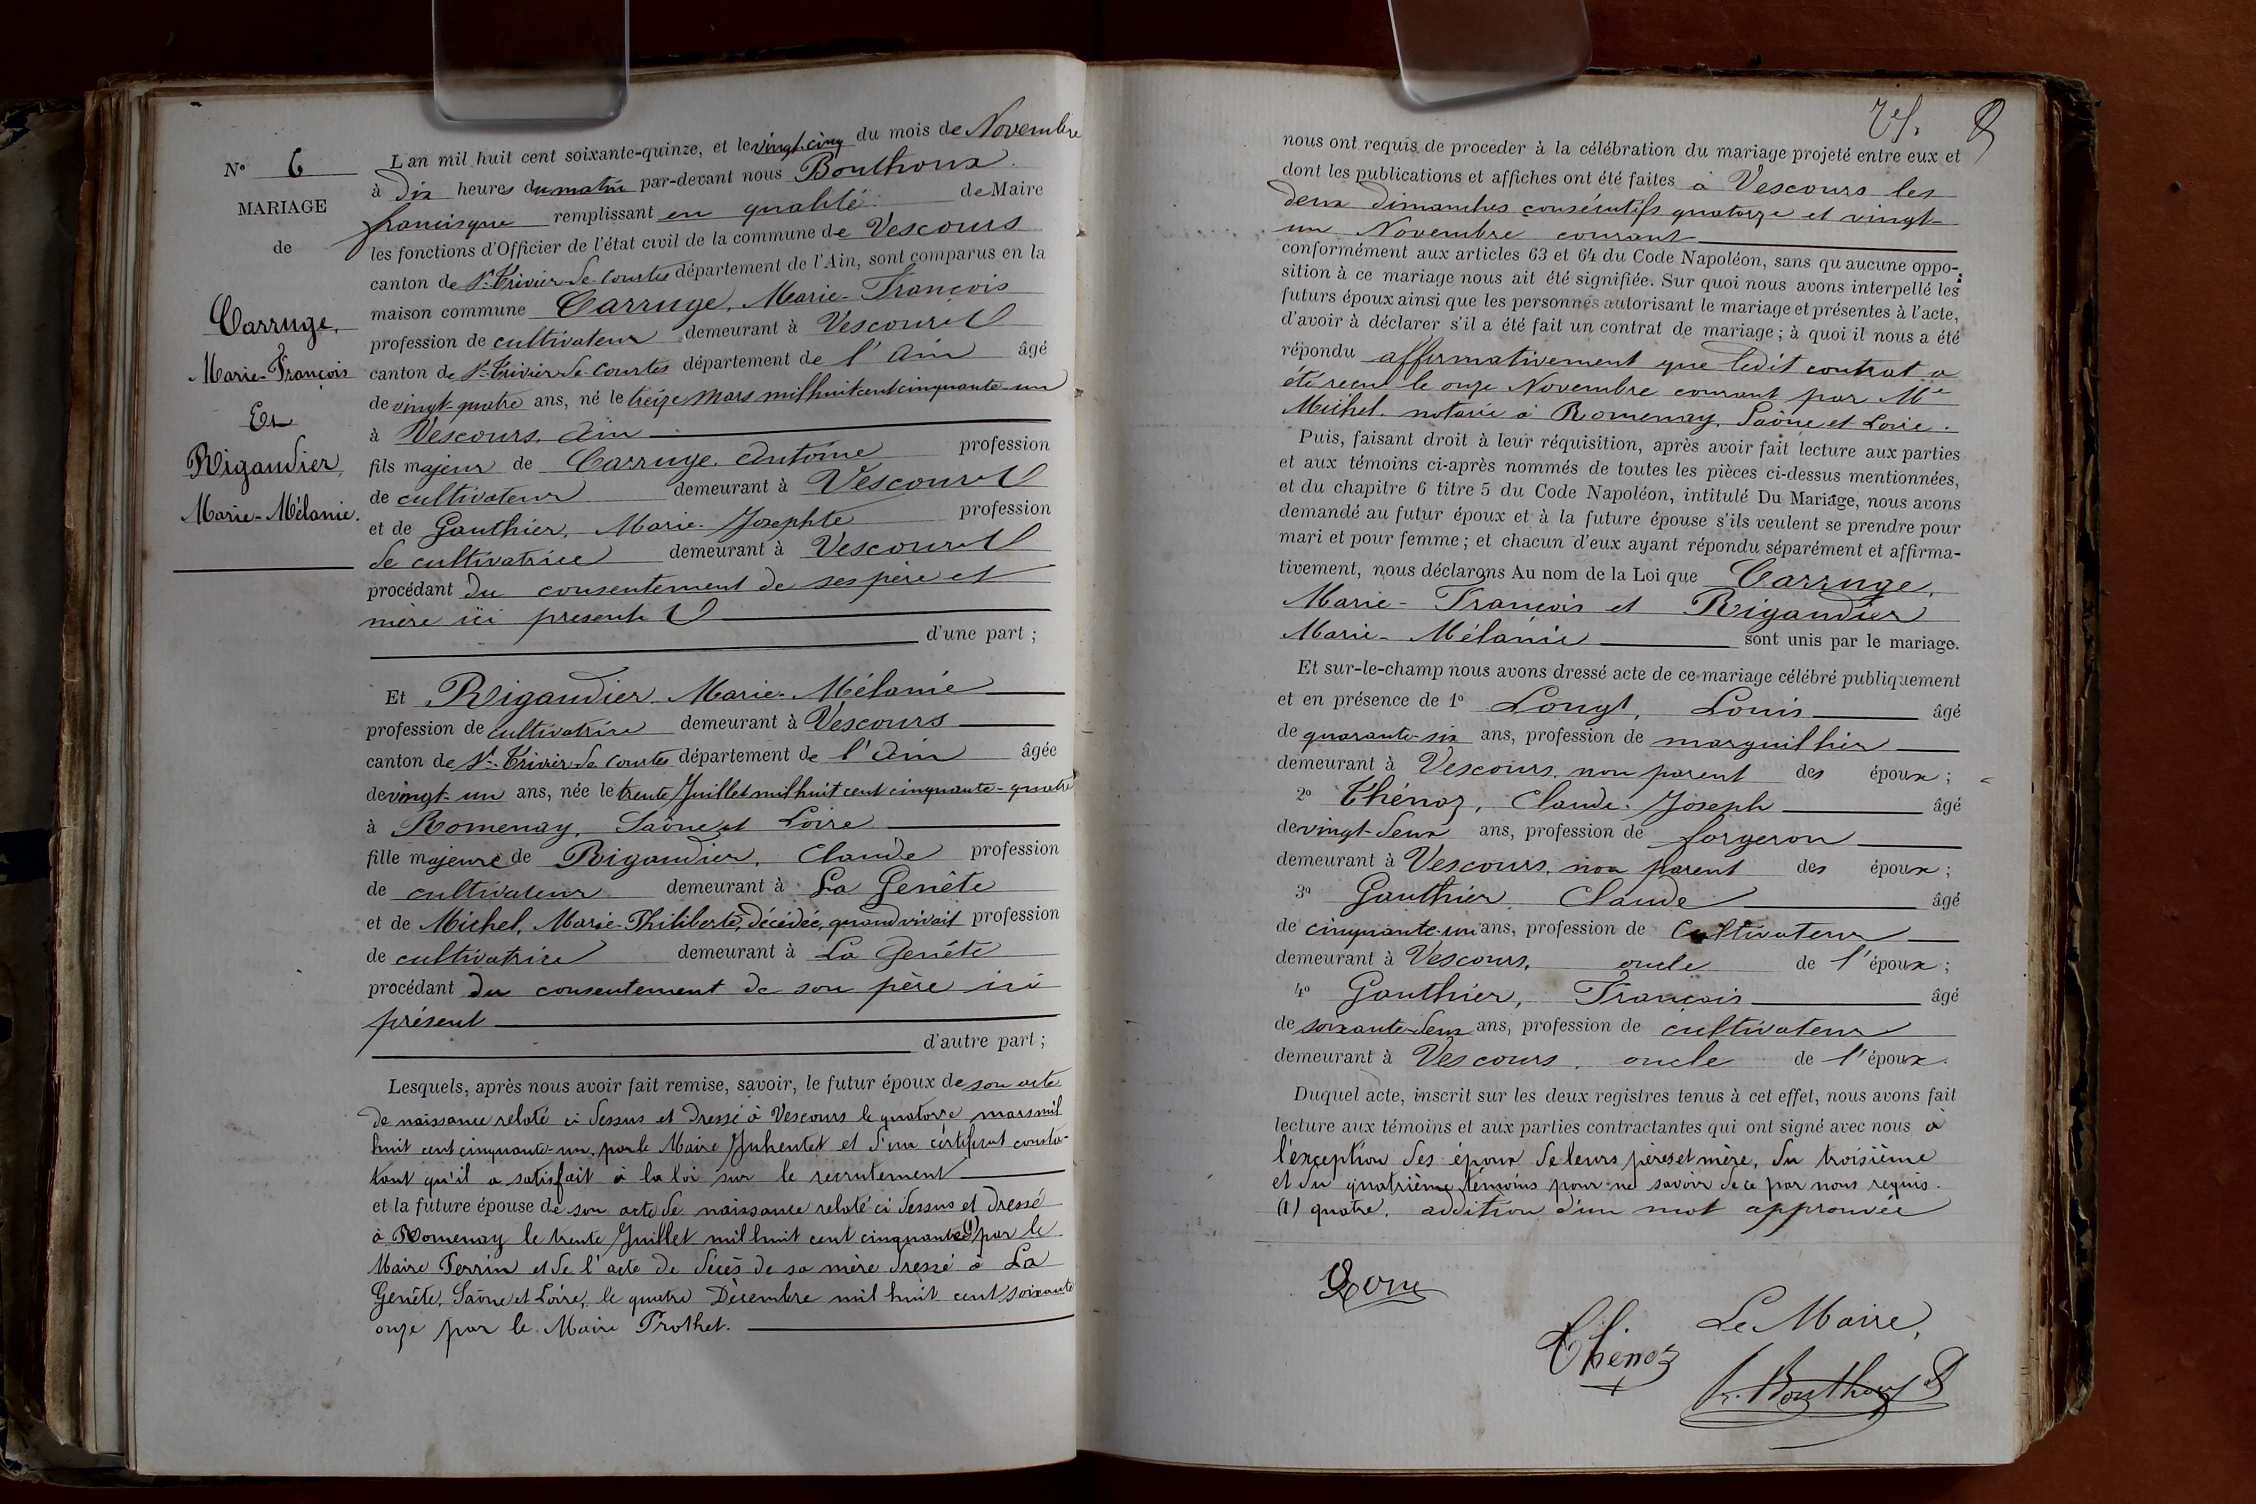 N° 6
MARIAGE
de
Carruge,
Marie-François
Et
Rigaudier,
Marie-Mélanie.
L'an mil huit cent soixante-quinze, et le vingt-cinq du mois de Novembre
à dix heures du matin par-devant nous Bouthoux
francisque remplissant en qualité de Maire
les fonctions d'Officier de l'état civil de la commune de Vescours
canton de St-Trivier-de-Courtes département de l'Ain, sont comparus en la
maison commune Carruge, Marie-François
profession de cultivateur demeurant à Vescours
canton de St-Trivier-de-Courtes département de l'Ain âgé
de vingt-quatre ans, né le treize Mars mil huit cent cinquante-un
à Vescours, Ain
fils majeur de Carruge, Antoine profession
de cultivateur demeurant à Vescours
et de Gauthier, Marie-Josephte profession
de cultivatrice demeurant à Vescours
procédant du consentement de ses père et
mère ici présents
d'une part ;
Et Rigaudier Marie-Mélanie
profession de cultivatrice demeurant à Vescours
canton de St-Trivier-de-Courtes département de l'Ain âgée
de vingt-un ans, née le trente Juillet mil huit cent cinquante-quatre
à Romenay, Saône et Loire
fille majeure de Rigaudier, Claude profession
de cultivateur demeurant à La Genête
et de Michel, Marie-Philiberte, décédée, quand vivait profession
de cultivatrice demeurant à La Genête
procédant du consentement de son père ici
présent
d'autre part ;
Lesquels, après nous avoir fait remise, savoir, le futur époux de son acte
de naissance relaté ci dessus et dressé à Vescours le quatorze mars mil
huit cent cinquante-un, par le Maire Juhentet et d'un certificat consta-
tant qu'il a satisfait à la loi sur le recrutement
et la future épouse de son acte de naissance relaté ci dessus et dressé
à Romenay le trente Juillet mil huit cent cinquante (1) par le
Maire Perrin et de l'acte de décès de sa mère dressé à La
Genête, Saône et Loire, le quatre Décembre mil huit cent soixante
onze par le Maire Prothet.
nous ont requis de procéder à la célébration du mariage projeté entre eux et
dont les publications et affiches ont été faites à Vescours les
deux dimanches consécutifs quatorze et vingt-
un Novembre courant
conformément aux articles 63 et 64 du Code Napoléon, sans qu'aucune oppo-
sition à ce mariage nous ait été signifiée. Sur quoi nous avons interpellé les
futurs époux ainsi que les personnes autorisant le mariage et présentes à l'acte,
d'avoir à déclarer s'il a été fait un contrat de mariage ; à quoi il nous a été
répondu affirmativement que ledit contrat a
été recu le onze Novembre courant par Me
Michel notaire à Romenay, Saône et Loire.
Puis, faisant droit à leur réquisition, après avoir fait lecture aux parties
et aux témoins ci-après nommés de toutes les pièces ci-dessus mentionnées,
et du chapitre 6 titre 5 du Code Napoléon, intitulé Du Mariage, nous avons
demandé au futur époux et à la future épouse s'ils veulent se prendre pour
mari et pour femme ; et chacun d'eux ayant répondu séparément et affirma-
tivement, nous déclarons Au nom de la Loi que Carruge,
Marie-François et Rigaudier
Marie-Mélanie sont unis par le mariage.
Et sur-le-champ nous avons dressé acte de ce mariage célébré publiquement
et en présence de 1° Louis âgé
de quarante-six ans, profession de marguillier
demeurant à Vescours, non parent des époux ;
2° Thénoz, Claude-Joseph âgé
de vingt-deux ans, profession de forgeron
demeurant à Vescours, non parent des époux ;
3° Gauthier, Claude âgé
de cinquante-un ans, profession de cultivateur
demeurant à Vescours, oncle de l'époux ;
4° Gauthier, François âgé
de soixante-deux ans, profession de cultivateur
demeurant à Vescours, oncle de l'époux.
Duquel acte, inscrit sur les deux registres tenus à cet effet, nous avons fait
lecture aux témoins et aux parties contractantes qui ont signé avec nous à
l'exception des époux de leurs pères et mère, du troisième
et du quatrième témoins pour ne savoir de ce par nous requis.
(1) quatre. addition d'un mot approuvée
Thénoz
Le Maire,
Bouthoux